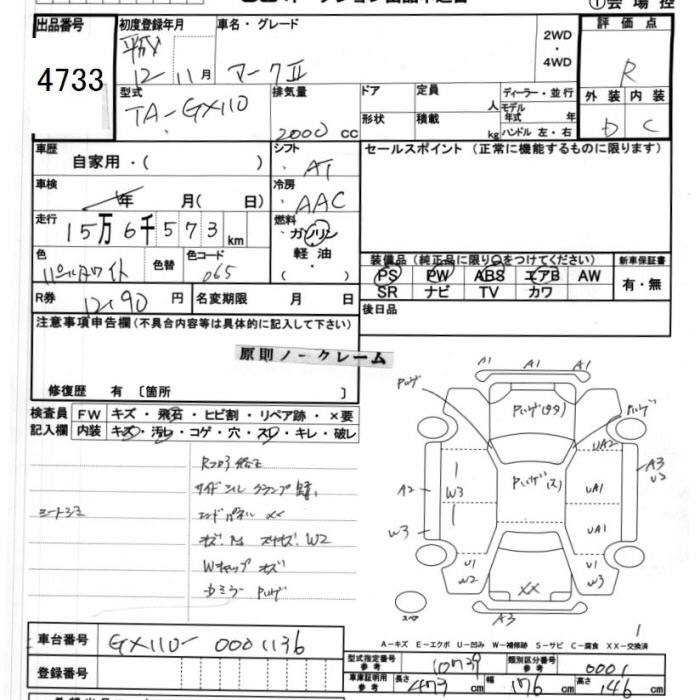 ①会場控
出品番号
4733
初度登録年月
平成
12-11月
車名・グレード
マークⅡ
2WD
・
4WD
評価点
R
外装 内装
D C
型式
TA-GX110
排気量
2000 cc
ドア
定員
人
ディーラー・並行
モデル
年式 年
形状
積載
kg
ハンドル 左・右
車歴
自家用・( )
シフト
AT
セールスポイント (正常に機能するものに限ります)
車検
年 月( 日)
冷房
AAC
走行
15万6千573km
燃料
ガソリン
軽油
・( )
色
パールホワイト
色替
色コード
065
装備品(純正品に限り○をつけてください)
PS PW ABS エアB AW
SR ナビ TV カワ
新車保証書
有・無
R券
12190円
名変期限 月 日
後日品
注意事項申告欄(不具合内容等は具体的に記入して下さい)
原則ノークレーム
修復歴 有〔箇所 〕
検査員
記入欄
FW キズ・飛石・ヒビ割・リペア跡・×要
内装 キズ・汚レ・コゲ・穴・スレ・キレ・破レ
エンドパネル XX
Wキャップ キズ
A1 A1 A1
W3
A2
W3
U1
W2
UA2
UA1
UA1
U1
W3
A3
U2
XX
A3
スペア
1
A-キズ E-エクボ U-凹み W-補修跡 S-サビ C-腐食 XX-交換済
車台番号
GX110-0001136
登録番号
型式指定番号
参考
類別区分番号
参考
0001
車庫証明用
参考
長さ 473 cm 幅 176 cm 高さ 146 cm